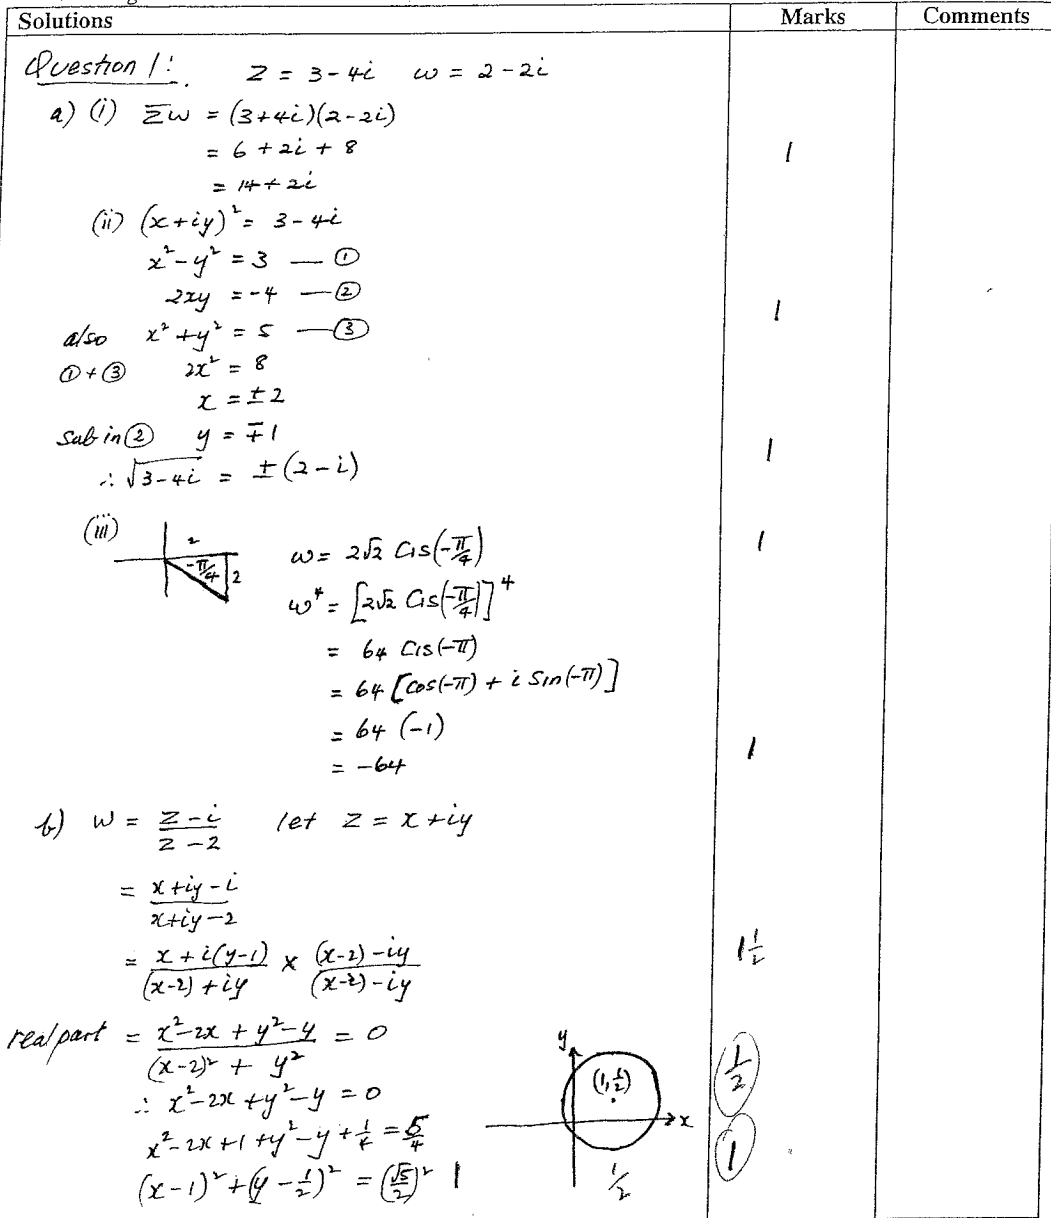 Solutions Marks Comments
Question 1: z = 3-4i w = 2-2i
a) (i) z̅w = (3+4i)(2-2i)
= 6 + 2i + 8 1
= 14 + 2i
(ii) (x+iy)² = 3-4i
x²-y² = 3 — ①
2xy = -4 — ②
1
also x²+y² = 5 — ③
①+③ 2x² = 8
x = ±2
sub in ② y = ∓1
1
∴ √3-4i = ±(2-i)
(iii) 2 -π/4 2 w = 2√2 Cis(-π/4) 1
w⁴ = [2√2 Cis(-π/4)]⁴
= 64 Cis(-π)
= 64 [cos(-π) + i Sin(-π)]
= 64 (-1)
= -64 1
b) w = z-i/z-2 let z = x+iy
= x+iy-i/x+iy-2
= x+i(y-1)/(x-2)+iy × (x-2)-iy/(x-2)-iy 1½
real part = x²-2x+y²-y/(x-2)²+y² = 0
y (1,½) x ½
∴ x²-2x+y²-y = 0
x²-2x+1+y²-y+¼ = 5/4
1
(x-1)²+(y-½)² = (√5/2)² 1 ½